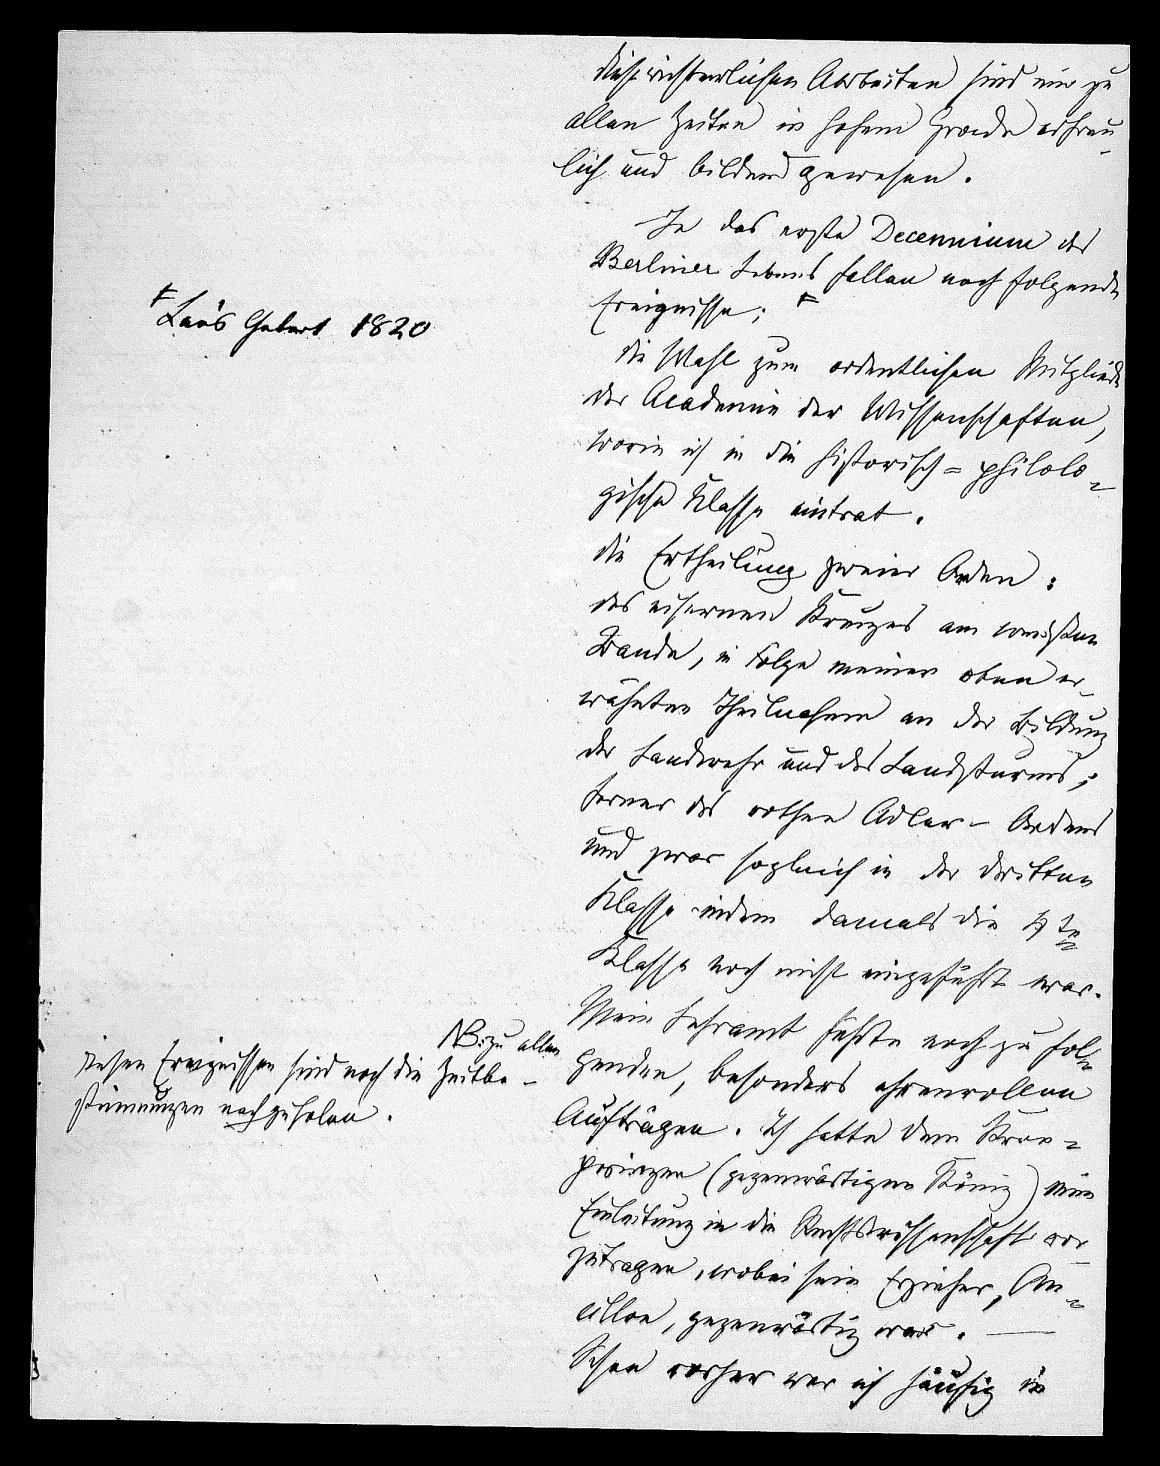 diese richterlichen Arbeiten sind mir zu
allen Zeiten in hohem Grade erfreu-
lich und bildend gewesen.
In das erste Decennium des
Berliner Lebens fallen noch folgende
Ereignisse; F
F Leo's Geburt 1820
die Wahl zum ordentlichen Mitgliede
der Academie der Wissenschaften,
worin ich in die historisch=philolo-
gische Klasse eintrat.
die Ertheilung zweier Orden:
des eisernen Kreuzes am weißen
Bande, in Folge meiner oben er-
wähnten Theilnahme an der Bildung
der Landwehr und des Landsturms;
ferner des rothen Adler-Ordens
und zwar sogleich in der dritten
Klasse indem damals die 4te
Klasse noch nicht eingeführt war.
NB. zu allen
diesen Ereignissen sind noch die Zeitbe-
stimmungen nachzuholen.
Mein Lehramt führte noch zu fol-
genden, besonders ehrenvollen
Aufträgen. Ich hatte dem Kron-
prinzen (gegenwärtigen König) eine
Einleitung in die Rechtswissenschaft vor
zutragen, wobei sein Erzieher, An-
cillon, gegenwärtig war. —
Schon vorher war ich häufig in